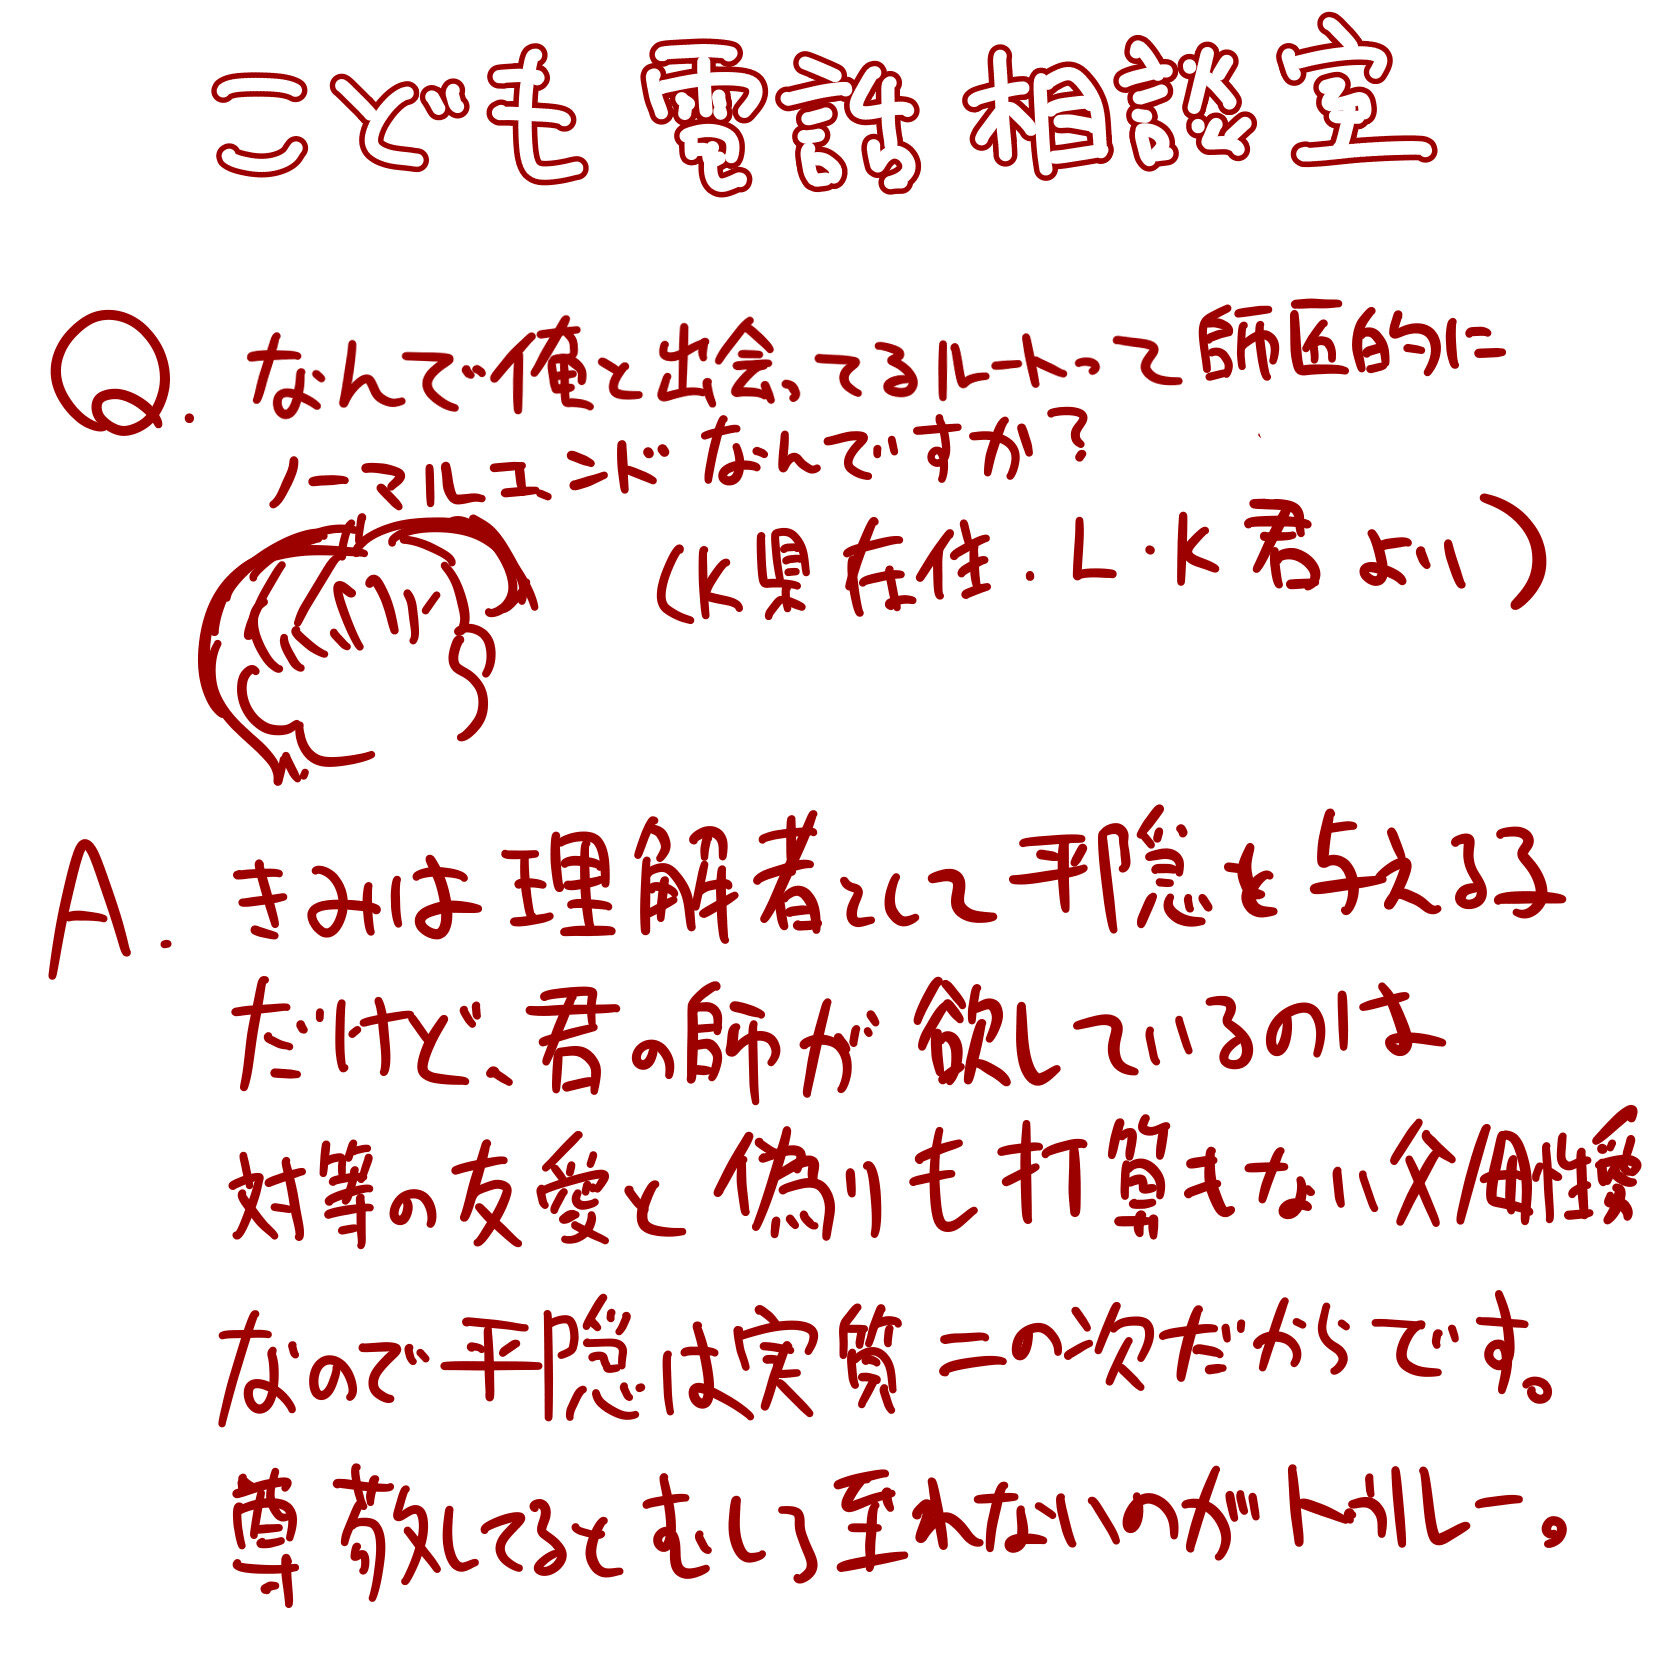 こども電話相談室
Q. なんで俺と出会ってるルートって師匠的に
ノーマルエンドなんですか?
(K県在住.L・K君より)
A. きみは理解者として平穏を与える子
だけど、君の師が欲しているのは
対等の友愛と偽りも打算もない父/母性愛
なので平穏は実質二の次だからです。
尊敬してるとむしろ至れないのがトゥルー。